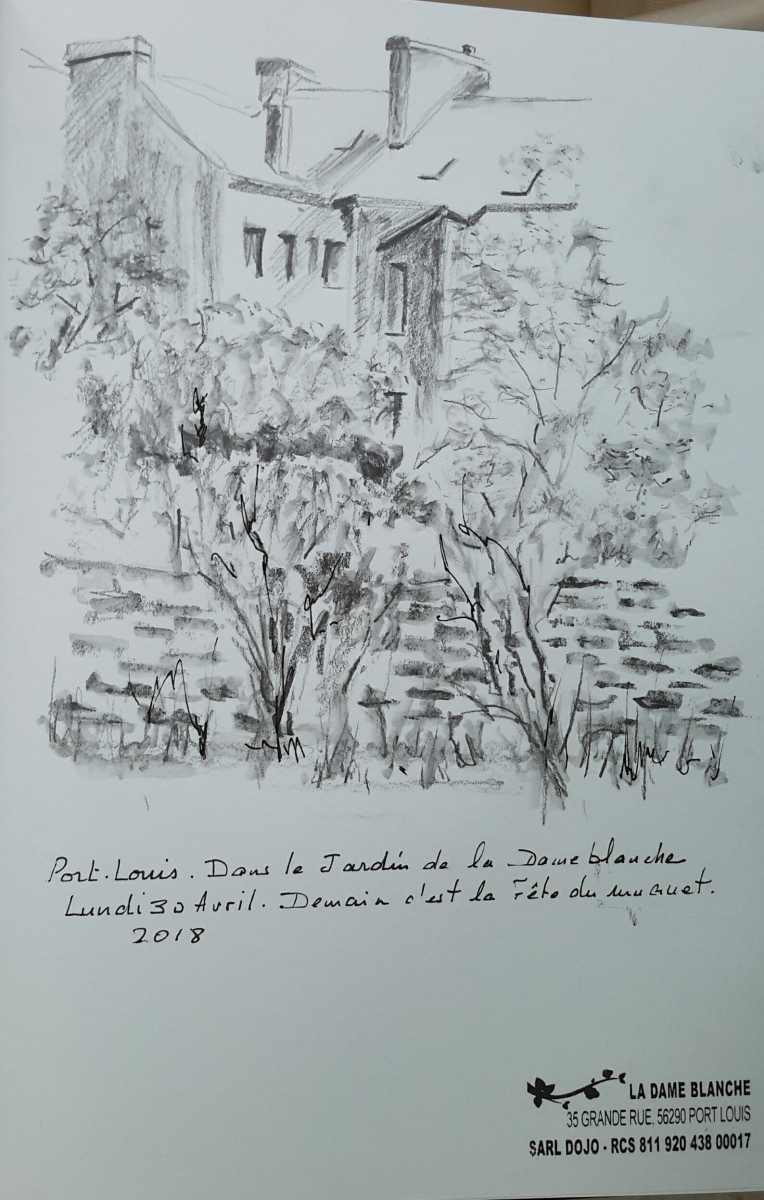 Port.Louis. Dans le Jardin de la Dame blanche
Lundi 30 Avril. Demain c'est la Fête du muguet.
2018
LA DAME BLANCHE
35 GRANDE RUE, 56290 PORT LOUIS
SARL DOJO - RCS 811 920 438 00017